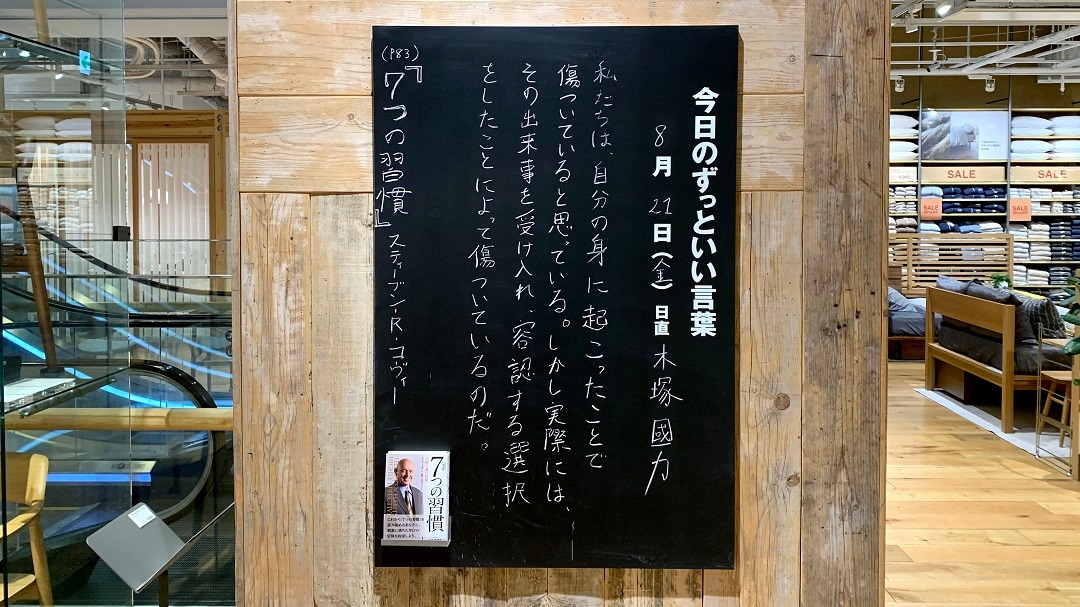 今日のずっといい言葉
8月21日(金)日直 木塚國力
私たちは、自分の身に起こったことで
傷ついていると思っている。しかし実際には、
その出来事を受け入れ、容認する選択
をしたことによって傷ついているのだ。
『7つの習慣』スティーブン・R・コヴィー
(P83)
7つの習慣
SALE
SALE
SALE
SALE